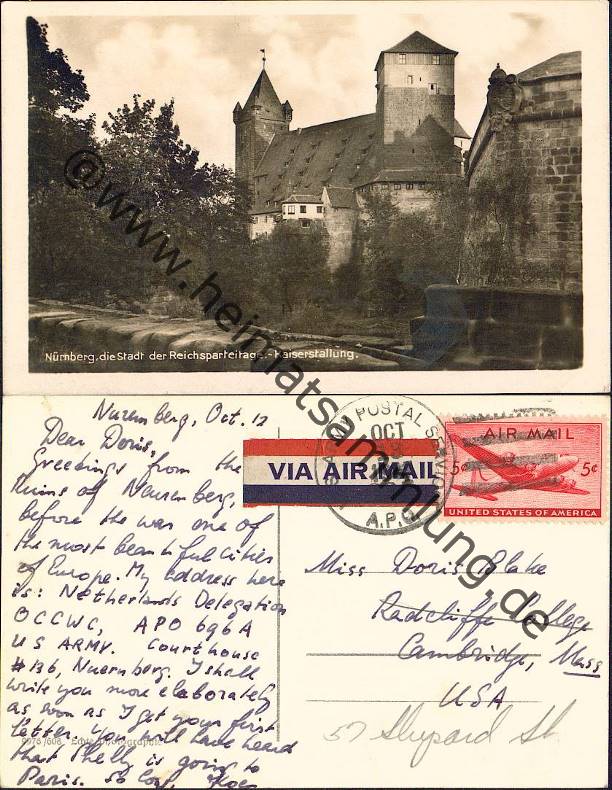 Nürnberg, die Stadt der Reichsparteitage.-Kaiserstallung.
@www.heimatsammlung.de
Nuremberg, Oct. 12
Dear Doris,
Greedings from the
Ruins of Neurenberg,
before the war one of
the most beautiful cities
of Europe. My address here
is: Netherlands Delegation
OCCWC, APO 696A
US ARMY. Courthouse
#136, Nuernberg. I shall
write you more elaborately
as soon as I get your first
letter. You will have heard
that Phelly is going to
Paris. So long,
ARMY POSTAL SERVICE
OCT
A.P.O.
VIA AIR MAIL
AIR MAIL
5¢ 5¢
UNITED STATES OF AMERICA
Miss Doris Blake
Radcliffe College
Cambridge, Mass
USA
57 Shepard St.